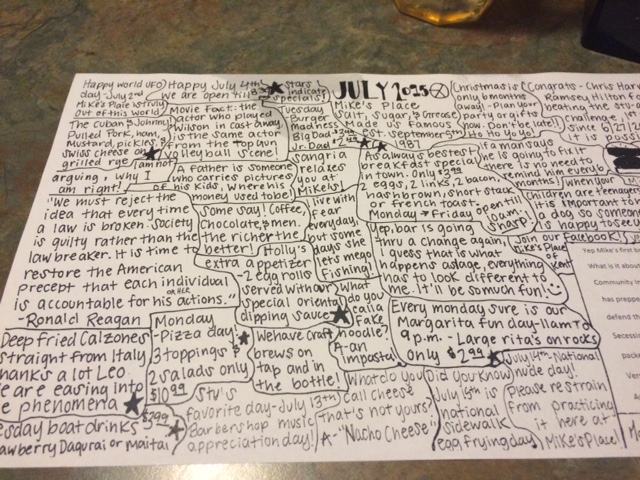 Happy world UFO
day-July 2nd
Mike's Place is truly
Out of this world
The Cuban @ Johnny
Pulled Pork, ham,
Mustard, pickles,
Swiss cheese on
grilled rye
Happy July 4th
we are open till 3
Movie Fact: the
actor who played
Wilson in cast away
is the same actor
from the Top Gun
volleyball scene!
I am not
arguing, why I
am right!
A father is someone
who carries pictures
of his kids, where his
money used to be!
Stars
indicate
specials!
Tuesday
Burger
madness
Big Dad
Jr. Dad
Sangria
relaxes
you at
Mike's!
JULY 2025
Mike's Place
Salt, Sugar, & Grease
Made us Famous
est. September 5th
1987
Christmas is
only 6 months
away! - Plan your
party or gifts
now. Don't be late!
Ho Ho Yo Yo!
Congrats - Chris Har
Ramsey Hilton f
beating the stu
challenge,
since 6/21
if a man says
he is going to fix it
there is no need to
remind him every 6
months!
When your
children are teenagers
it's important to
a dog so someone
is happy to see
Join our
Facebook
Mike's Place
of Kent
As always best
breakfast special
in town. Only $3.99
2 eggs, 2 links, 2 bacon,
hasbrown, short stack
or french toast.
Monday → Friday
open till
10am.
sharp!
"We must reject the
idea that every time
a law is broken. Society
is guilty rather than the
law breaker. It is time to
restore the American
precept that each individual
is accountable for his actions."
-Ronald Reagan
Some say! Coffee,
Chocolate, & men.
the richer the
better!
Holly's
extra appetizer
-2 egg rolls
served with our
special oriental
dipping sauce
live with
fear
everyday,
but some
days she
lets me go
Fishing!
Yep, bar is going
thru a change again,
I guess that is what
happens as age, everything
has to look different to
me. It'll be so much fun!
What
do you
call a
fake
noodle?
A- an
impasta!
Every monday sure is our
Margarita fun day-11am to
9 p.m. - Large rita's on rocks
Only $2.99
Deep fried Calzones
straight from Italy
Thanks a lot Leo.
We are easing into
the phenomena
Monday
-Pizza day!
3 toppings &
2 salads only
$10.99
We have Craft
brews on
tap and in
the bottle!
Tuesday boat drinks
Strawberry Daqurai or Maitai
Stu's
favorite day-July 13th
Barbershop music
appreciation day!
What do you
call cheese
that's not yours?
A- "Nacho Cheese"
Did you know
July 4th is
national
sidewalk
egg frying day
July 14th-National
nude day!
Please restrain
from practicing
it here at
Mike's Place!
Yep Mike's first b
What is it about
Community in
has prepared
defend th